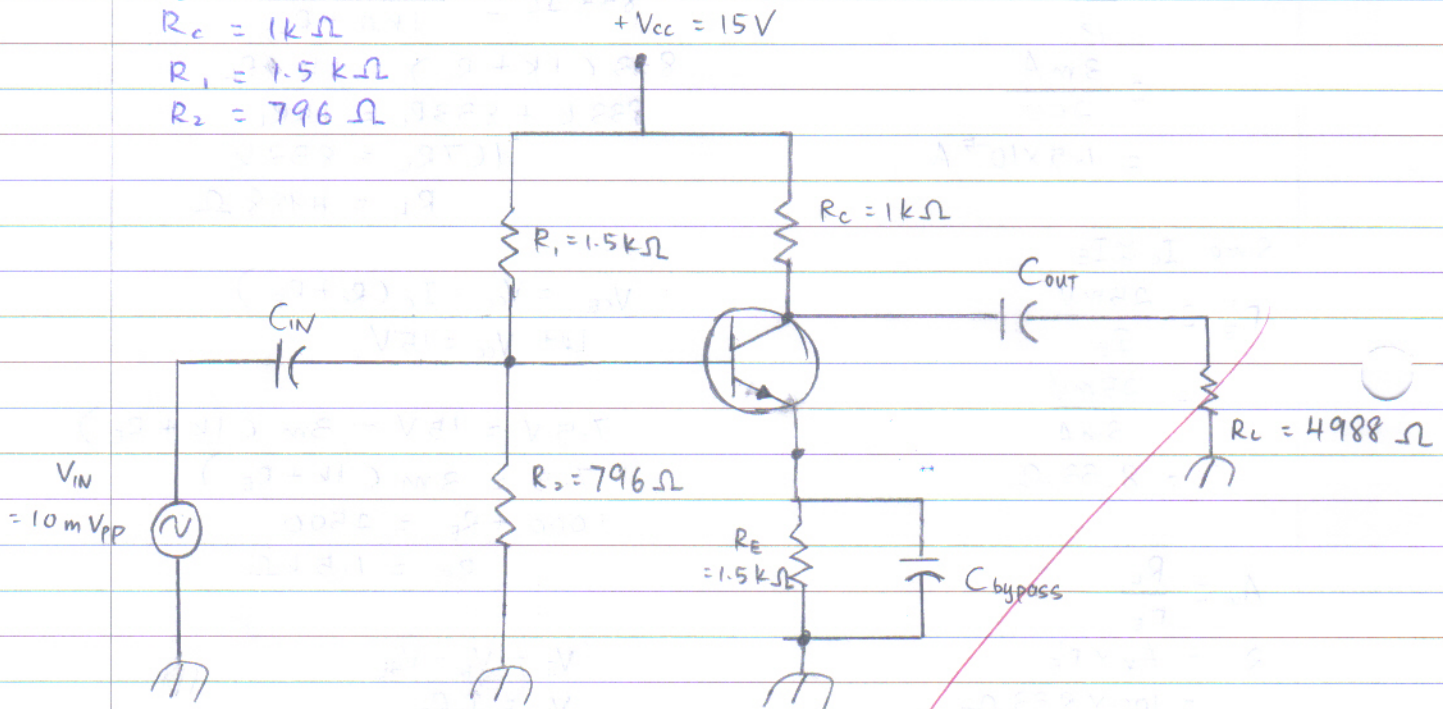 Rc = 1kΩ
R1 = 1.5 kΩ
R2 = 796 Ω
+Vcc = 15V
Rc = 1kΩ
R1 = 1.5kΩ
COUT
CIN
RL = 4988 Ω
VIN
= 10 m Vpp
R2 = 796 Ω
RE
= 1.5kΩ
Cbypass